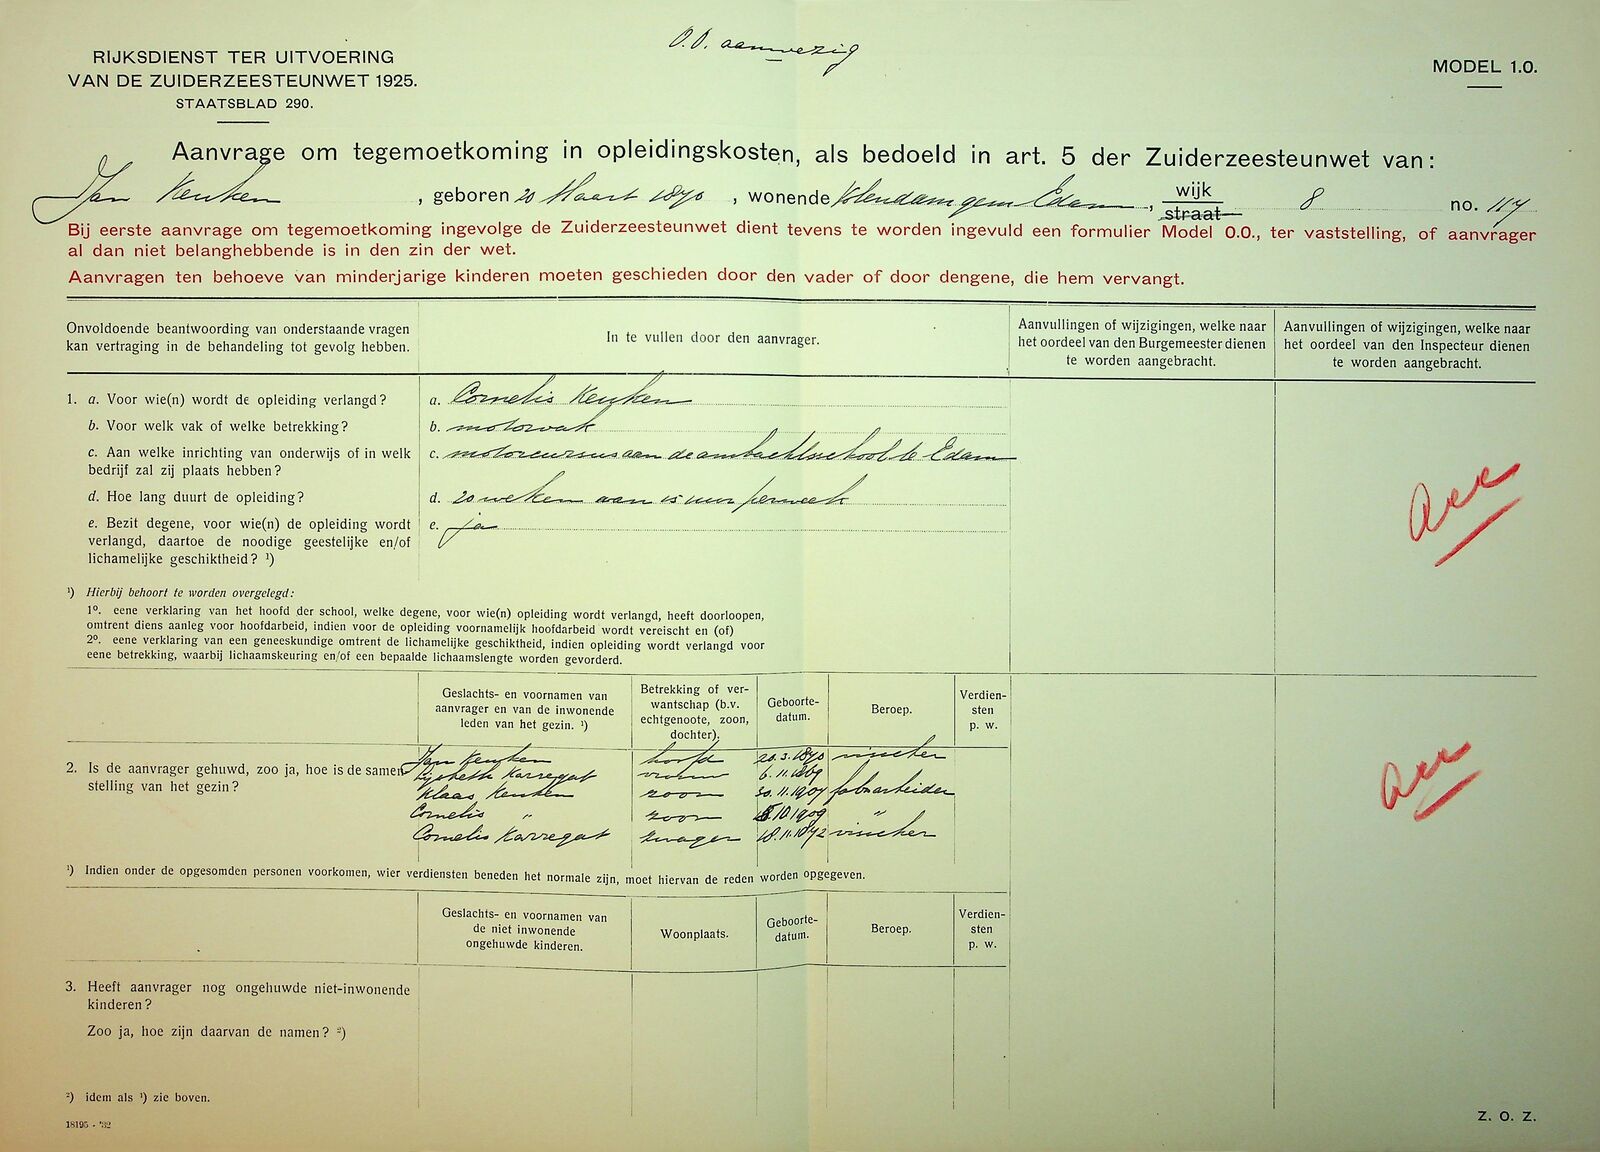 O.O. aanwezig
RIJKSDIENST TER UITVOERING
VAN DE ZUIDERZEESTEUNWET 1925.
STAATSBLAD 290.
MODEL 1.O.
Aanvrage om tegemoetkoming in opleidingskosten, als bedoeld in art. 5 der Zuiderzeesteunwet van:
Jan Keuken, geboren 20 Maart 1870, wonende Volendam gem Edam, wijk straat 8 no. 114
Bij eerste aanvrage om tegemoetkoming ingevolge de Zuiderzeesteunwet dient tevens te worden ingevuld een formulier Model O.O., ter vaststelling, of aanvrager
al dan niet belanghebbende is in den zin der wet.
Aanvragen ten behoeve van minderjarige kinderen moeten geschieden door den vader of door dengene, die hem vervangt.
Onvoldoende beantwoording van onderstaande vragen
kan vertraging in de behandeling tot gevolg hebben.
In te vullen door den aanvrager.
Aanvullingen of wijzigingen, welke naar
het oordeel van den Burgemeester dienen
te worden aangebracht.
Aanvullingen of wijzigingen, welke naar
het oordeel van den Inspecteur dienen
te worden aangebracht.
1. a. Voor wie(n) wordt de opleiding verlangd?
a. Cornelis Keuken
b. Voor welk vak of welke betrekking?
b. motorvak
c. Aan welke inrichting van onderwijs of in welk
bedrijf zal zij plaats hebben?
c. motorcursus aan de ambachtsschool te Edam
d. Hoe lang duurt de opleiding?
d. 20 weken aan 15 uur per week
e. Bezit degene, voor wie(n) de opleiding wordt
verlangd, daartoe de noodige geestelijke en/of
lichamelijke geschiktheid? ¹)
e. ja
¹) Hierbij behoort te worden overgelegd:
1º. eene verklaring van het hoofd der school, welke degene, voor wie(n) opleiding wordt verlangd, heeft doorloopen,
omtrent diens aanleg voor hoofdarbeid, indien voor de opleiding voornamelijk hoofdarbeid wordt vereischt en (of)
2º. eene verklaring van een geneeskundige omtrent de lichamelijke geschiktheid, indien opleiding wordt verlangd voor
eene betrekking, waarbij lichaamskeuring en/of een bepaalde lichaamslengte worden gevorderd.
Geslachts- en voornamen van
aanvrager en van de inwonende
leden van het gezin. ¹)
Betrekking of ver-
wantschap (b.v.
echtgenoote, zoon,
dochter).
Geboorte-
datum.
Beroep.
Verdien-
sten
p. w.
2. Is de aanvrager gehuwd, zoo ja, hoe is de samen-
stelling van het gezin?
Jan Keuken hoofd 20.3.1870 visscher
Lijsbeth Karregat vrouw 6.11.1869
Klaas Keuken zoon 30.11.1907 fabr arbeider
Cornelis " zoon 10.1909 "
Cornelis Karregat zwager 18.11.1872 visscher
¹) Indien onder de opgesomden personen voorkomen, wier verdiensten beneden het normale zijn, moet hiervan de reden worden opgegeven.
Geslachts- en voornamen van
de niet inwonende
ongehuwde kinderen.
Woonplaats.
Geboorte-
datum.
Beroep.
Verdien-
sten
p. w.
3. Heeft aanvrager nog ongehuwde niet-inwonende
kinderen?
Zoo ja, hoe zijn daarvan de namen? ²)
²) idem als ¹) zie boven.
18195 - '32
Z. O. Z.